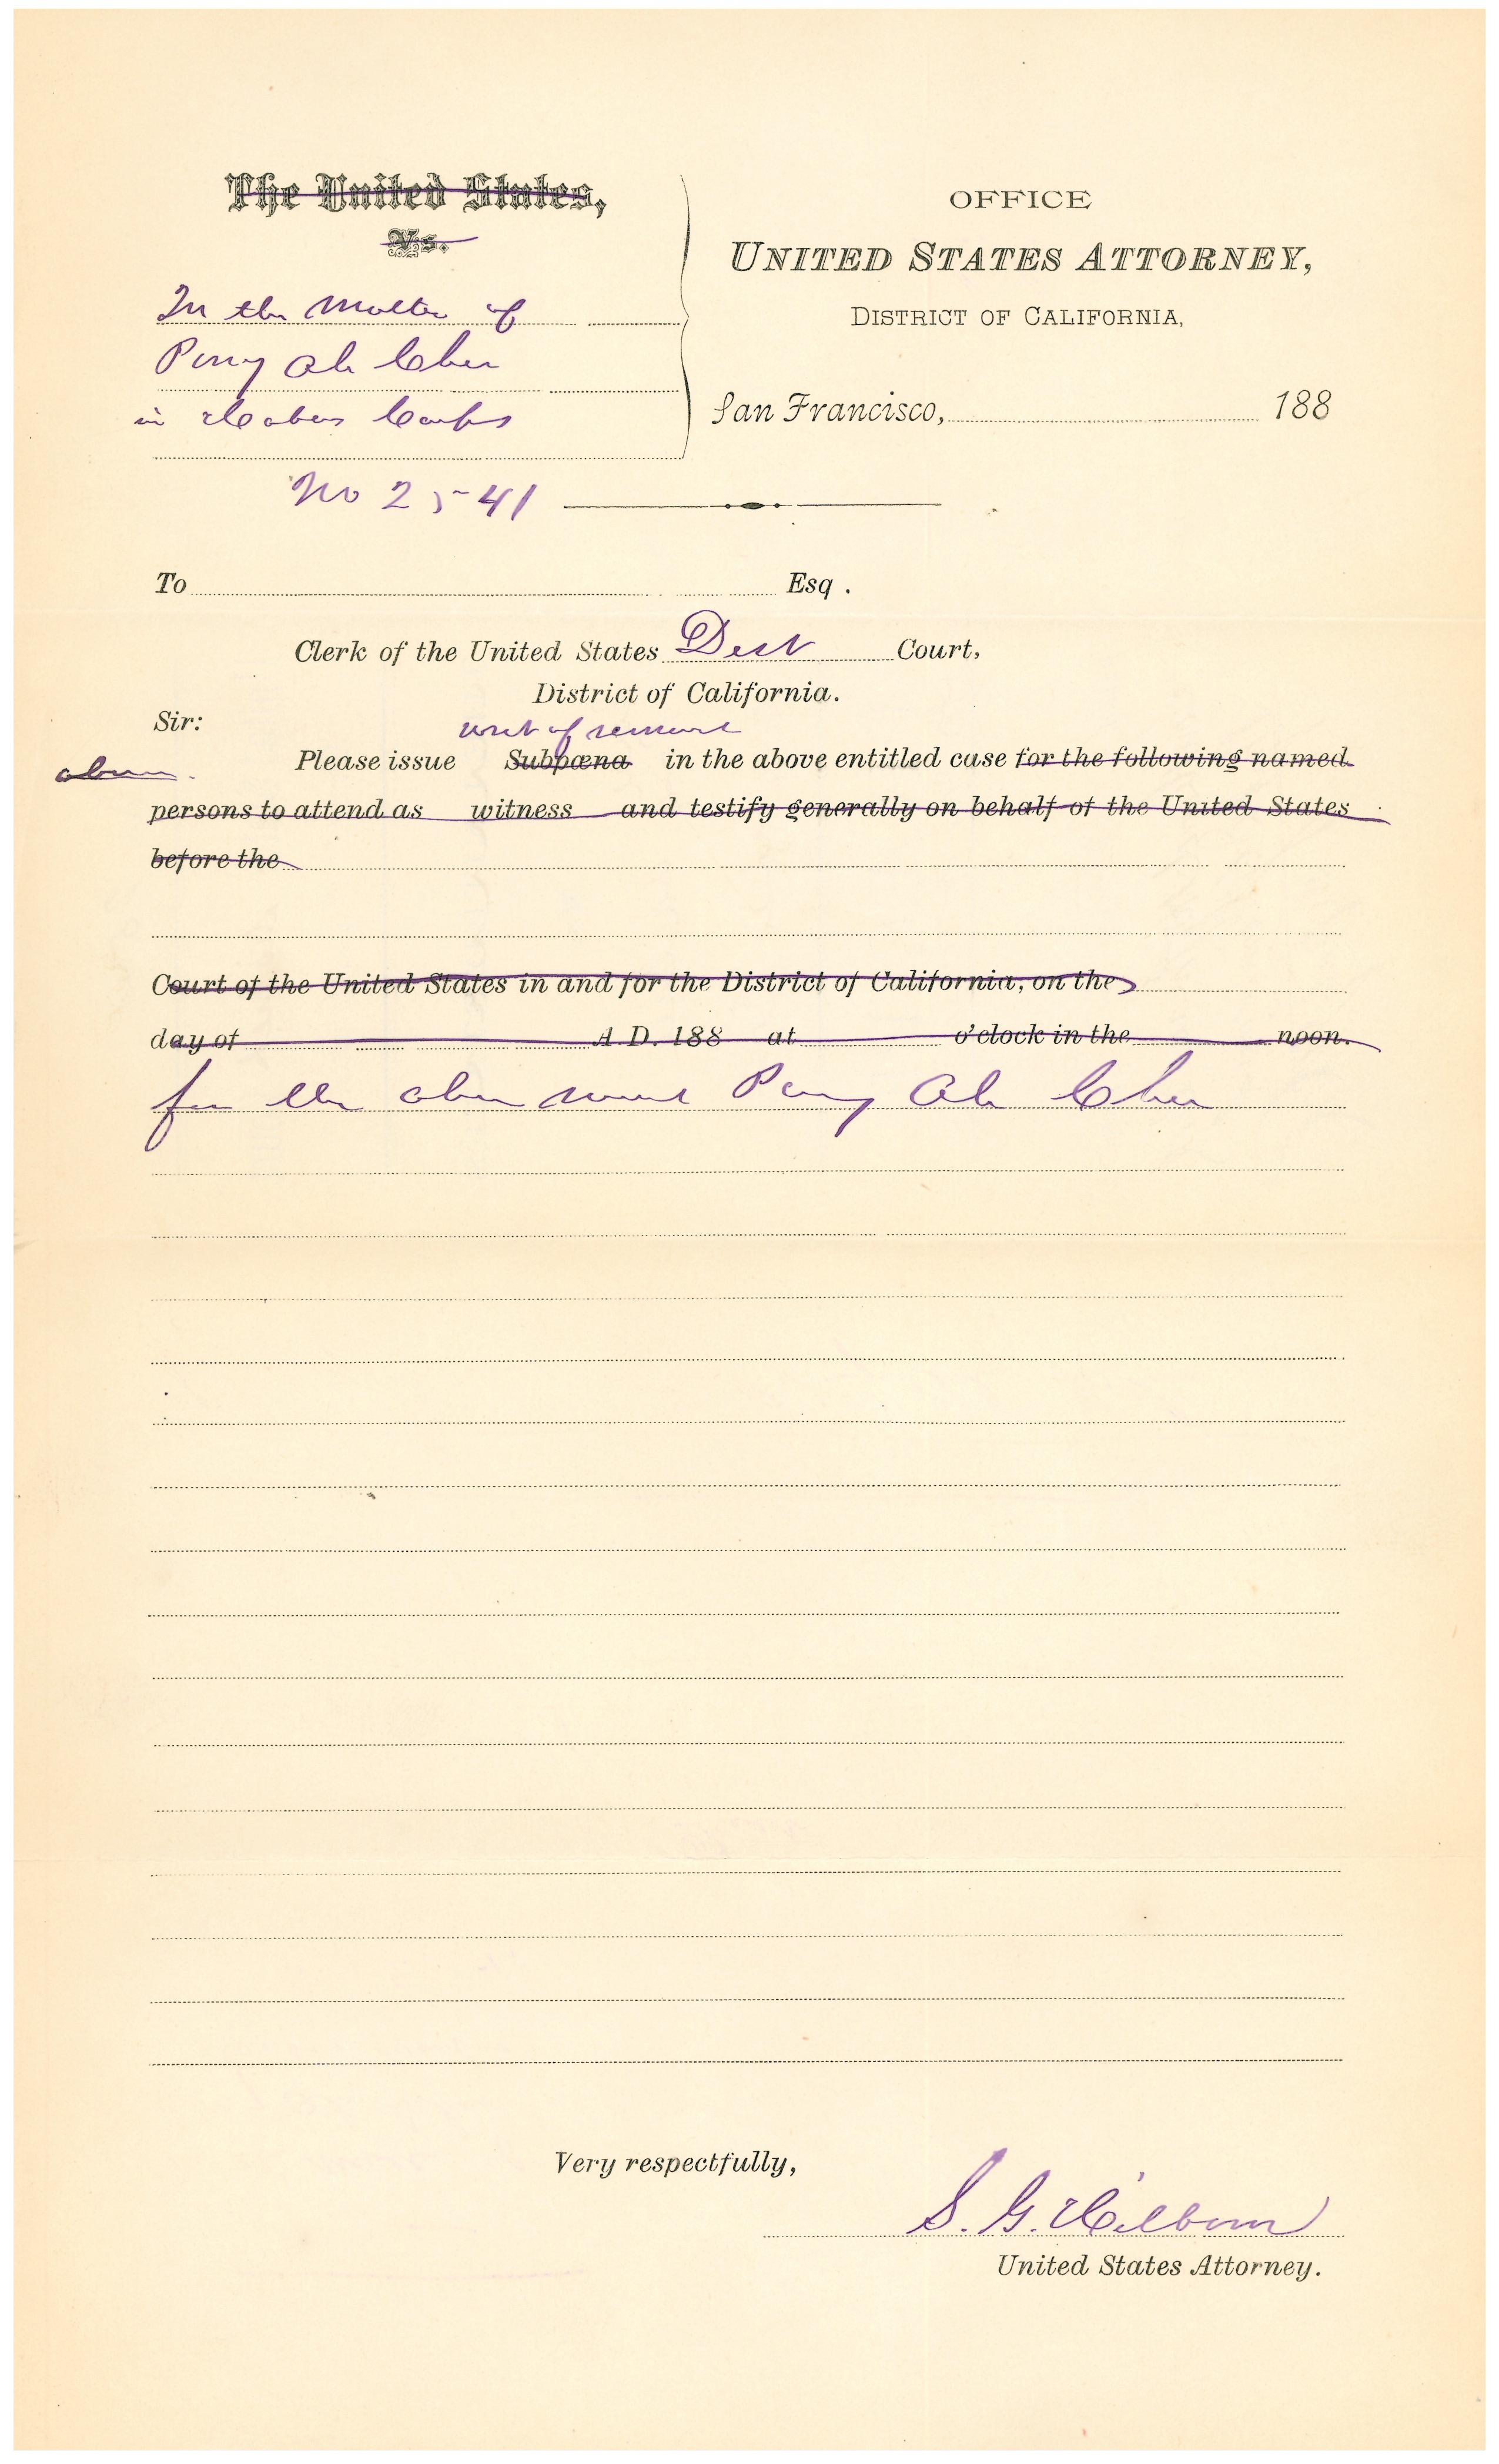 The United States,
Vs.
In the Matter of
Ah Chu
in Habeas Corpus
No 2541
OFFICE
UNITED STATES ATTORNEY,
DISTRICT OF CALIFORNIA,
San Francisco, 188
To Esq.
Clerk of the United States Dist Court,
District of California.
Sir:
writ of remand
Please issue Subpœna in the above entitled case for the following named
persons to attend as witness and testify generally on behalf of the United States
before the
Court of the United States in and for the District of California, on the
day of A. D. 188 at o'clock in the noon.
for the above named Ah Chu
Very respectfully,
S. G. Hilborn
United States Attorney.